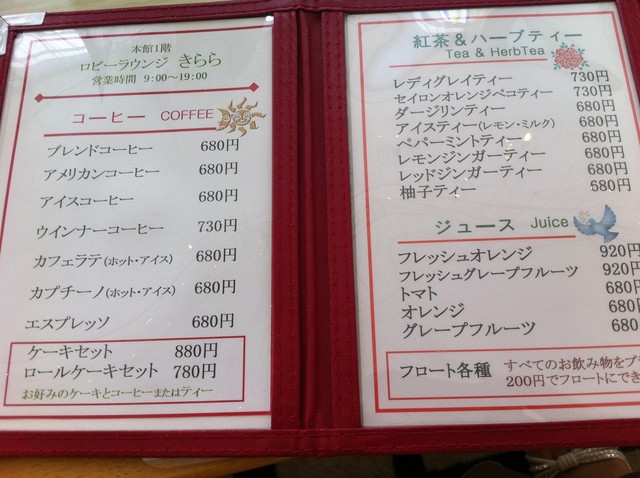 本館1階
ロビーラウンジ きらら
営業時間 9:00～19:00
コーヒー COFFEE
ブレンドコーヒー 680円
アメリカンコーヒー 680円
アイスコーヒー 680円
ウインナーコーヒー 730円
カフェラテ(ホット・アイス) 680円
カプチーノ(ホット・アイス) 680円
エスプレッソ 680円
ケーキセット 880円
ロールケーキセット 780円
お好みのケーキとコーヒーまたはティー
紅茶&ハーブティー
Tea & HerbTea
レディグレイティー 730円
セイロンオレンジペコティー 730円
ダージリンティー 680円
アイスティー(レモン・ミルク) 680円
ペパーミントティー 680円
レモンジンガーティー 680円
レッドジンガーティー 680円
柚子ティー 680円
ジュース Juice
フレッシュオレンジ 920円
フレッシュグレープフルーツ 920円
トマト 680円
オレンジ 680
グレープフルーツ 680
フロート各種 すべてのお飲み物をプ
200円でフロートにでき